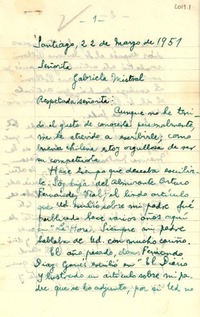 - 1 -
Santiago, 22 de Marzo de 1951
Señorita
Gabriela Mistral
Respetada señorita:
Aunque no he teni-
do el gusto de conocerla personalmente
me he atrevido a escribirle; como
buena chilena estoy orgullosa de ser
su compatriota.
Hace tiempo que deseaba escribir-
le. Soy hija del Almirante Arturo
Fernández Vial; el lindo artículo
que Ud. escribió sobre mi padre fué
publicado hace varios años aquí
en "La Hora". Siempre mi padre
hablaba de Ud. con mucho cariño.
El año pasado, don Fernando
Díaz Garcés escribió en "El Diario
Ilustrado" un artículo sobre mi pa-
dre, que se lo adjunto, por si Ud. no